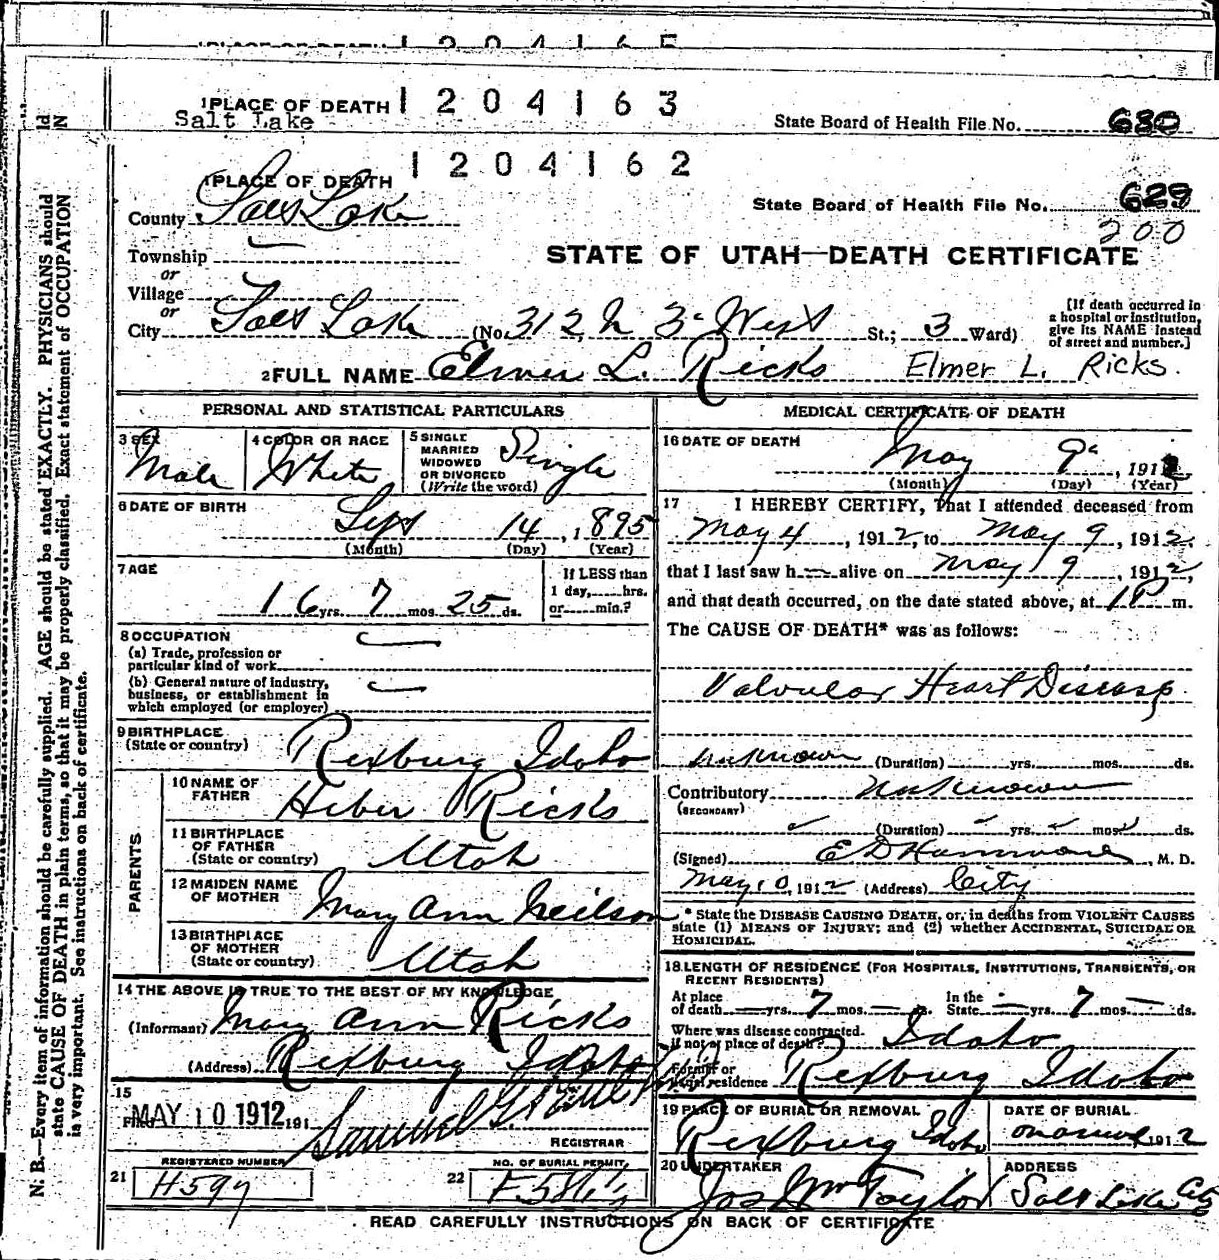 1 PLACE OF DEATH 1204165
1 PLACE OF DEATH 1204163
Salt Lake
State Board of Health File No. 680
1204162
1 PLACE OF DEATH
County Salt Lake
State Board of Health File No. 629
200
STATE OF UTAH—DEATH CERTIFICATE
Township
or
Village
or
City Salt Lake (No. 312 N 3d West St.; 3 Ward)
[If death occurred in a hospital or institution, give its NAME instead of street and number.]
2 FULL NAME Elmer L. Ricks Elmer L. Ricks.
PERSONAL AND STATISTICAL PARTICULARS
3 SEX Male
4 COLOR OR RACE White
5 SINGLE MARRIED WIDOWED OR DIVORCED (Write the word) Single
6 DATE OF BIRTH Sept 14, 1895
(Month) (Day) (Year)
7 AGE 16 yrs. 7 mos. 25 ds.
If LESS than 1 day, hrs. or min.?
8 OCCUPATION
(a) Trade, profession or particular kind of work
(b) General nature of industry, business, or establishment in which employed (or employer)
9 BIRTHPLACE
(State or country) Rexburg Idaho
PARENTS
10 NAME OF FATHER Heber Ricks
11 BIRTHPLACE OF FATHER
(State or country) Utah
12 MAIDEN NAME OF MOTHER Mary Ann Neilson
13 BIRTHPLACE OF MOTHER
(State or country) Utah
14 THE ABOVE IS TRUE TO THE BEST OF MY KNOWLEDGE
(Informant) Mary Ann Ricks
(Address) Rexburg Idaho
15
Filed MAY 10 1912 191
Samuel G.
REGISTRAR
REGISTERED NUMBER
21 H597
NO. OF BURIAL PERMIT
22
MEDICAL CERTIFICATE OF DEATH
16 DATE OF DEATH
May 9, 1912
(Month) (Day) (Year)
17 I HEREBY CERTIFY, That I attended deceased from
May 4, 1912, to May 9, 1912,
that I last saw h alive on May 9, 1912,
and that death occurred, on the date stated above, at 1 P m.
The CAUSE OF DEATH* was as follows:
Valvular Heart Disease
unknown (Duration) yrs. mos. ds.
Contributory Unknown
(SECONDARY)
(Duration) yrs. mos. ds.
(Signed) E D Hammond, M. D.
May 10, 1912 (Address) City
* State the DISEASE CAUSING DEATH, or, in deaths from VIOLENT CAUSES
state (1) MEANS OF INJURY; and (2) whether ACCIDENTAL, SUICIDAL OR
HOMICIDAL.
18. LENGTH OF RESIDENCE (FOR HOSPITALS, INSTITUTIONS, TRANSIENTS, OR
RECENT RESIDENTS)
At place of death yrs. 7 mos. ds. In the State yrs. 7 mos. ds.
Where was disease contracted, if not at place of death? Idaho
Former or usual residence Rexburg Idaho
19 PLACE OF BURIAL OR REMOVAL
Rexburg Idaho
DATE OF BURIAL
1912
20 UNDERTAKER
Jos Wm Taylor
ADDRESS
Salt Lake City
READ CAREFULLY INSTRUCTIONS ON BACK OF CERTIFICATE
N. B.—Every item of information should be carefully supplied. AGE should be stated EXACTLY. PHYSICIANS should
state CAUSE OF DEATH in plain terms, so that it may be properly classified. Exact statement of OCCUPATION
is very important. See instructions on back of certificate.